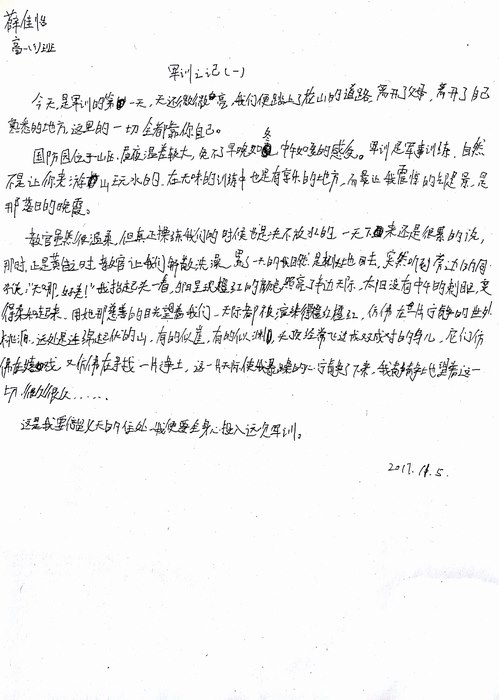 薛佳怡
高一(1)班
军训之记(一)
今天,是军训的第一天,天还微微亮,我们便踏上了于山的道路,离开了父母,离开了自己
熟悉的地方,这里的一切全都靠你自己。
国防园位于山区,昼夜温差较大,免不了早晚如冬,中午如夏的感受。军训是军事训练,自然
不是让你来游山玩水的,在无味的训练中也是有享乐的地方,而最让我震惊的美景,是
那落日的晚霞。
教官虽然很温柔,但真正操练我们的时候也是决不放水的,一天下来还是很累的说,
那时,正是黄昏之时,教官让我们解散洗澡,累了一天的我自然是
天哪,好美!"我抬起头一看,夕阳呈现橙红的颜色照亮了半边天际,太阳没有中午的刺眼,变
得柔和起来,用她那慈善的目光望着我们,天际都被渲染得橙红橙红,仿佛在一片宁静的世外
桃源,远处是连绵起伏的山,有的似 有的似 经常飞过成双成对的鸟儿,它们仿
佛在嬉戏,又仿佛在寻找一片净土,这一片天际使我 的心宁静了下来,我静静地望着这一
切很久很久......
这是我要待 天的住处,我便要全身心投入这次军训。
2017.11.5.